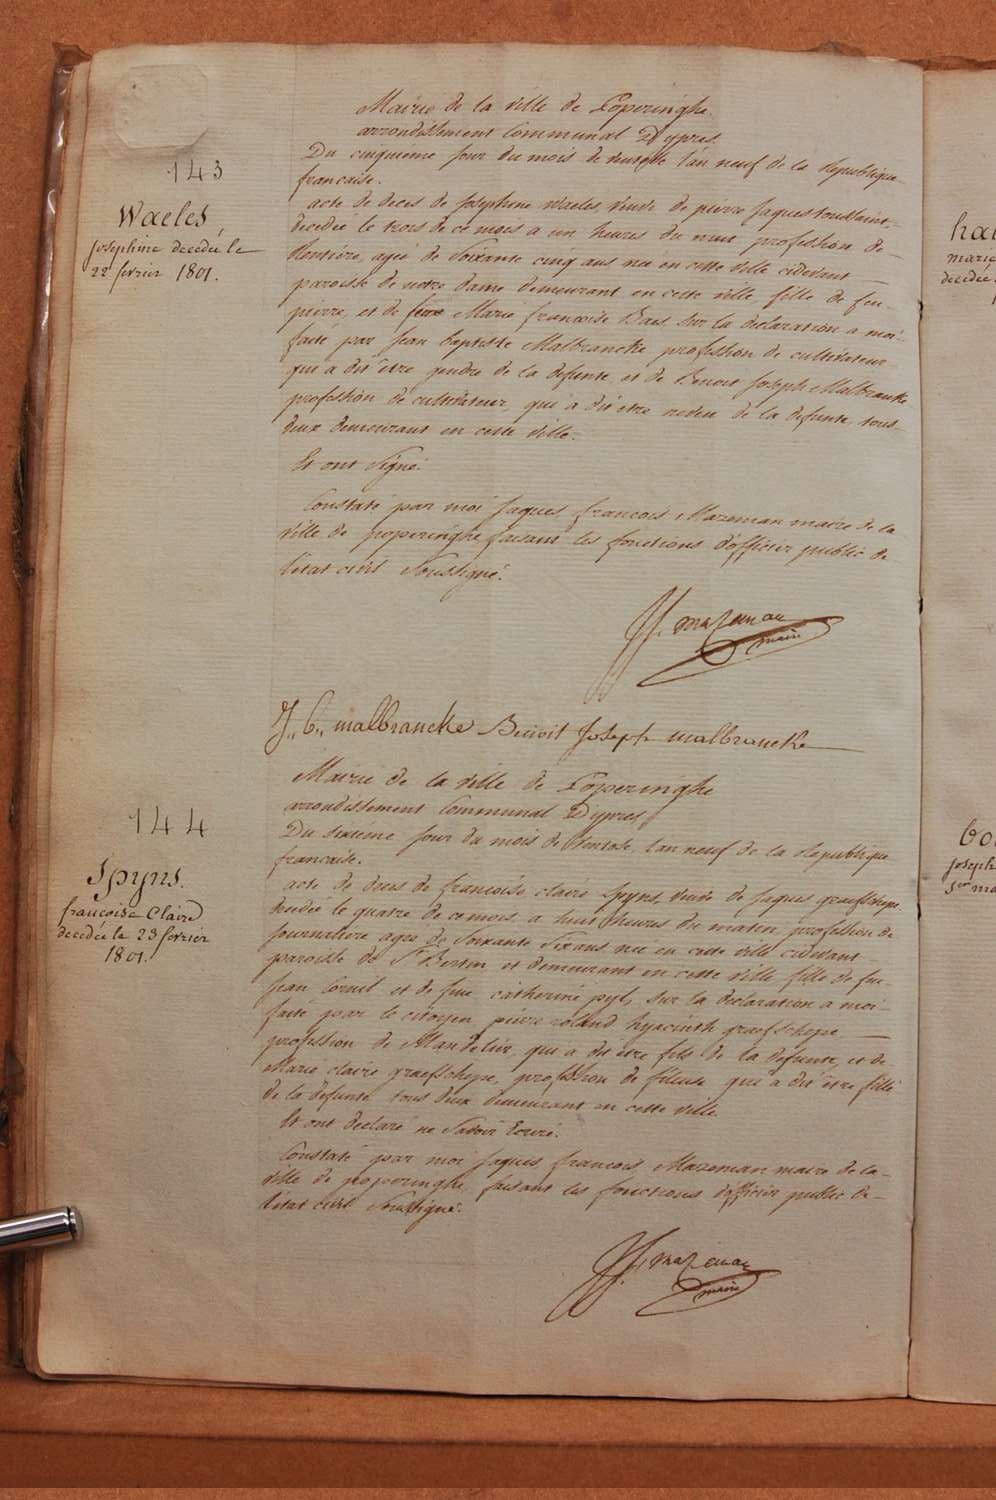 143
Waeles
josephine decedée le
22 fevrier 1801.
Mairie de la ville de Poperinghe.
arrondissement Communal D'ypres
Du cinquieme jour du mois de ventose l'an neuf de la Republique
francaise.
acte de deces de Josephine Waeles, veuve de pierre Jaques toussaint,
decedée le trois de ce mois a un heures du nuit, profession de
Rentiere, agée de Soixante cinq ans née en cette ville cidevant
paroisse de notre dame demeurant en cette ville fille de feu
pierre, et de feue Marie françoise Baes, sur la declaration a moi
faite par Jean baptiste Malbrancke profession de cultivateur
qui a dit être gendre de la defunte, et de Benoit Joseph Malbrancke
profession de cultivateur, qui a dit etre neveu de la defunte, tous
deux demeurant en cette ville.
Et ont Signé.
Constaté par moi Jaques francois Mazeman maire de la
ville de poperinghe faisant les fonctions d'officier public de
l'etat civil Soussigné.
JJ. Mazeman
maire
J. b. malbrancke Benoit Joseph malbrancke
144
Spyns.
françoise Claire
decedée le 23 fevrier
1801.
Mairie de la ville de Poperinghe
arrondissement Communal D'ypres
Du sixieme jour du mois de Ventose, l'an neuf de la Republique
francaise.
acte de deces de françoise claire Spyns, veuve de Jaques graefschepe
decedée le quatre de ce mois, a huit heures du matin, profession de
Journaliere agée de Soixante Six ans née en cette ville cidevant
paroisse de St Bertin, et demeurant en cette ville fille de feu
Jean Cornil et de feue catherine pyl, sur la declaration a moi
faite par le citoyen pierre roland hyacinth graefschepe
profession de Mandelier, qui a dit être fils de la defunte, et de
Marie claire graefschepe, profession de fileuse qui a dit être fille
de la defunte tous deux demeurant en cette ville
Et ont declaré ne Savoir Ecrire.
Constaté par moi Jaques francois Mazeman maire de la
ville de poperinghe, faisant les fonctions d'officier public de
l'etat civil Soussigné.
JJ. Mazeman
maire
marie
decedée
joseph